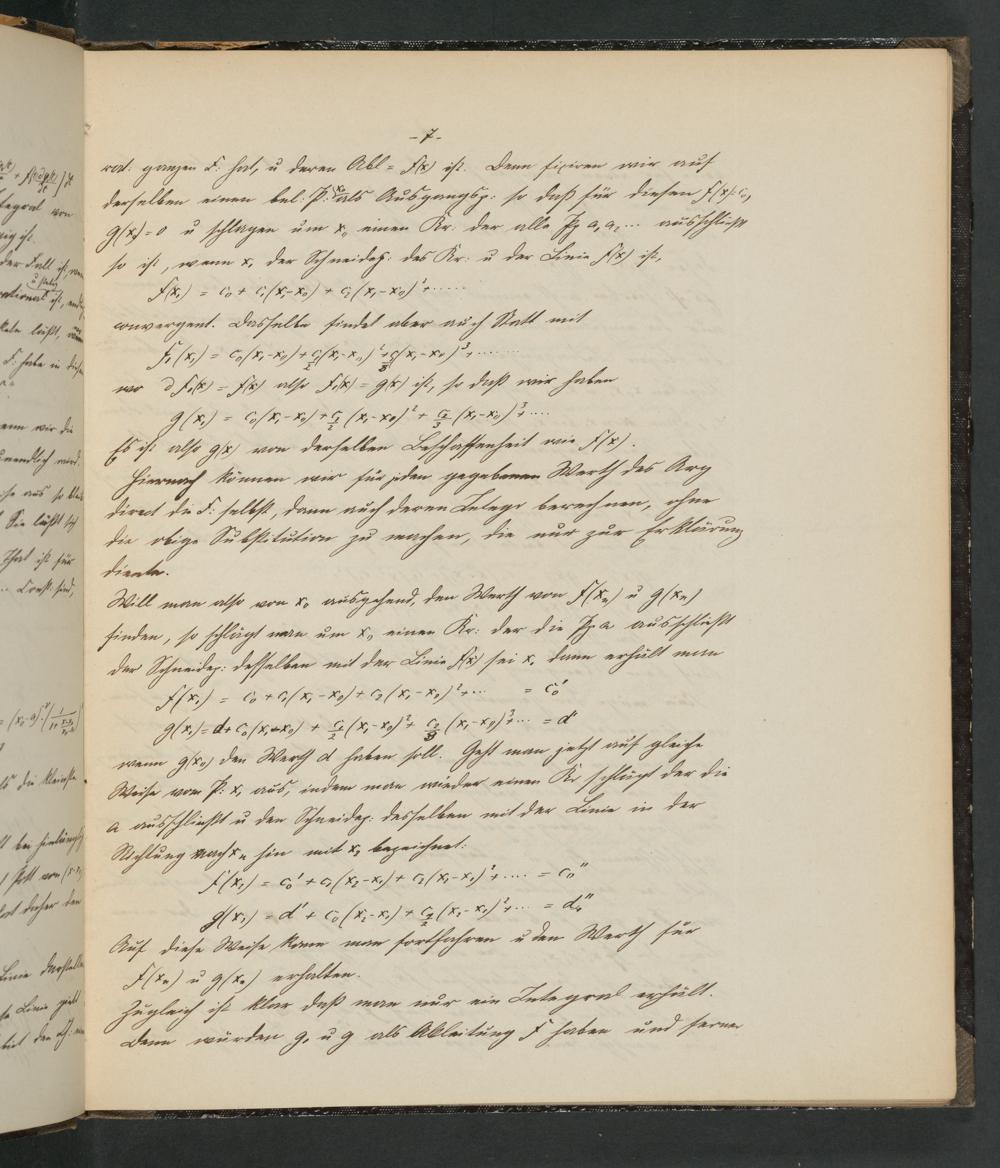 -7-
rat: ganzen F: hat, u deren Abl = f(x) ist. Denn fixiren wir auf
derselben einen bel: P: x₀ als Ausgangsp: so daß für diesen f(x)=c₀
g(x)=0 u schlagen um x₀ einen Kr: der alle Pp a, a, ... ausschließt
so ist, wenn x, der Schneidep: des Kr: u der Linie f(x) ist,
f(x₁) = c₀ + c₁(x₁-x₀) + c₂(x₁-x₀)²+ .....
convergent. Dasselbe findet aber auch Statt mit
f₁(x₁) = c₀(x₁-x₀) + c₁/2 (x₁-x₀)² + c₂/3 (x₁-x₀)³+ .......
wo ∂f₁(x) = f(x) also f₁(x) = g(x) ist, so daß wir haben
g(x₁) = c₀(x₁-x₀) + c₁/2 (x₁-x₀)² + c₂/3 (x₁-x₀)³+ ....
Es ist also g(x) von derselben Beschaffenheit wie f(x).
Hiernach können wir für jeden gegebenen Werth des Arg
direct die F: selbst, dann auch deren Integr berechnen, ohne
die obige Substitution zu machen, die nur zur Erklärung
diente.
Will man also von x₀ ausgehend, den Werth von f(xₙ) u g(xₙ)
finden, so schlägt man um x₀ einen Kr: der die Pp a ausschließt
der Schneidep: desselben mit der Linie f(x) sei x, dann erhält man
f(x₁) = c₀ + c₁(x₁-x₀) + c₂(x₁-x₀)²+ ... = c₀'
g(x₁) = d + c₀(x₁-x₀) + c₁/2 (x₁-x₀)² + c₂/3 (x₁-x₀)³+ ... = d'
wenn g(x₀) den Werth d haben soll. Geht man jetzt auf gleiche
Weise vom P: x, aus, indem man wieder einen Kr schlägt der die
a ausschließt u den Schneidep: desselben mit der Linie in der
Richtung nach xₙ hin mit x₂ bezeichnet:
f(x₂) = c₀' + c₁(x₂-x₁) + c₂(x₂-x₁)²+ .... = c₀''
g(x₂) = d' + c₀(x₂-x₁) + c₁/2 (x₂-x₁)²+ ... = d''
Auf diese Weise kann man fortfahren u den Werth für
f(xₙ) u g(xₙ) erhalten.
Zugleich ist klar daß man nur ein Integral erhält.
Denn würden g, u g als Ableitung f haben und ferner